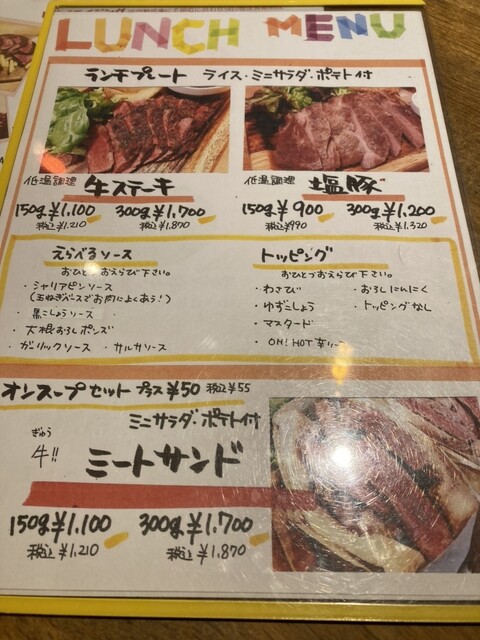 LUNCH MENU
ランチプレート ライス・ミニサラダ・ポテト付
低温調理 牛ステーキ
150g ¥1,100 300g ¥1,700
税込¥1,210 税込¥1,870
低温調理 塩豚
150g ¥900 300g ¥1,200
税込¥990 税込¥1,320
えらべるソース
おひとつおえらび下さい。
・シャリアピンソース
(玉ねぎベースでお肉によくあう!)
・黒こしょうソース
・大根おろしポンズ
・ガーリックソース ・サルサソース
トッピング
おひとつおえらび下さい。
・わさび ・おろしにんにく
・ゆずこしょう ・トッピングなし
・マスタード
・OH! HOT 辛ソース
オンスープセット プラス¥50 税込¥55
ミニサラダ・ポテト付
ぎゅう
牛!! ミートサンド
150g ¥1,100 300g ¥1,700
税込¥1,210 税込¥1,870